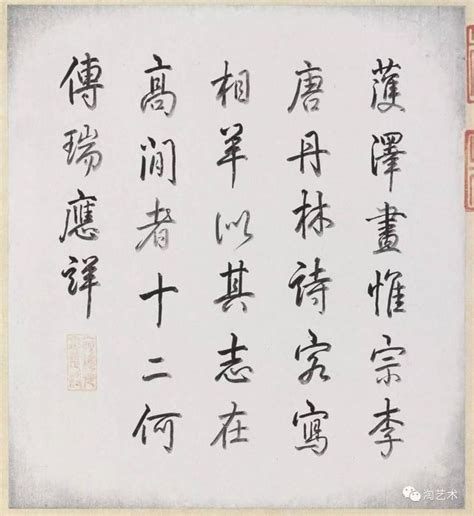 濩澤畫惟宗李
唐丹林詩客寫
相羊以其志在
高閒者十二何
傳瑞應詳
淘艺术